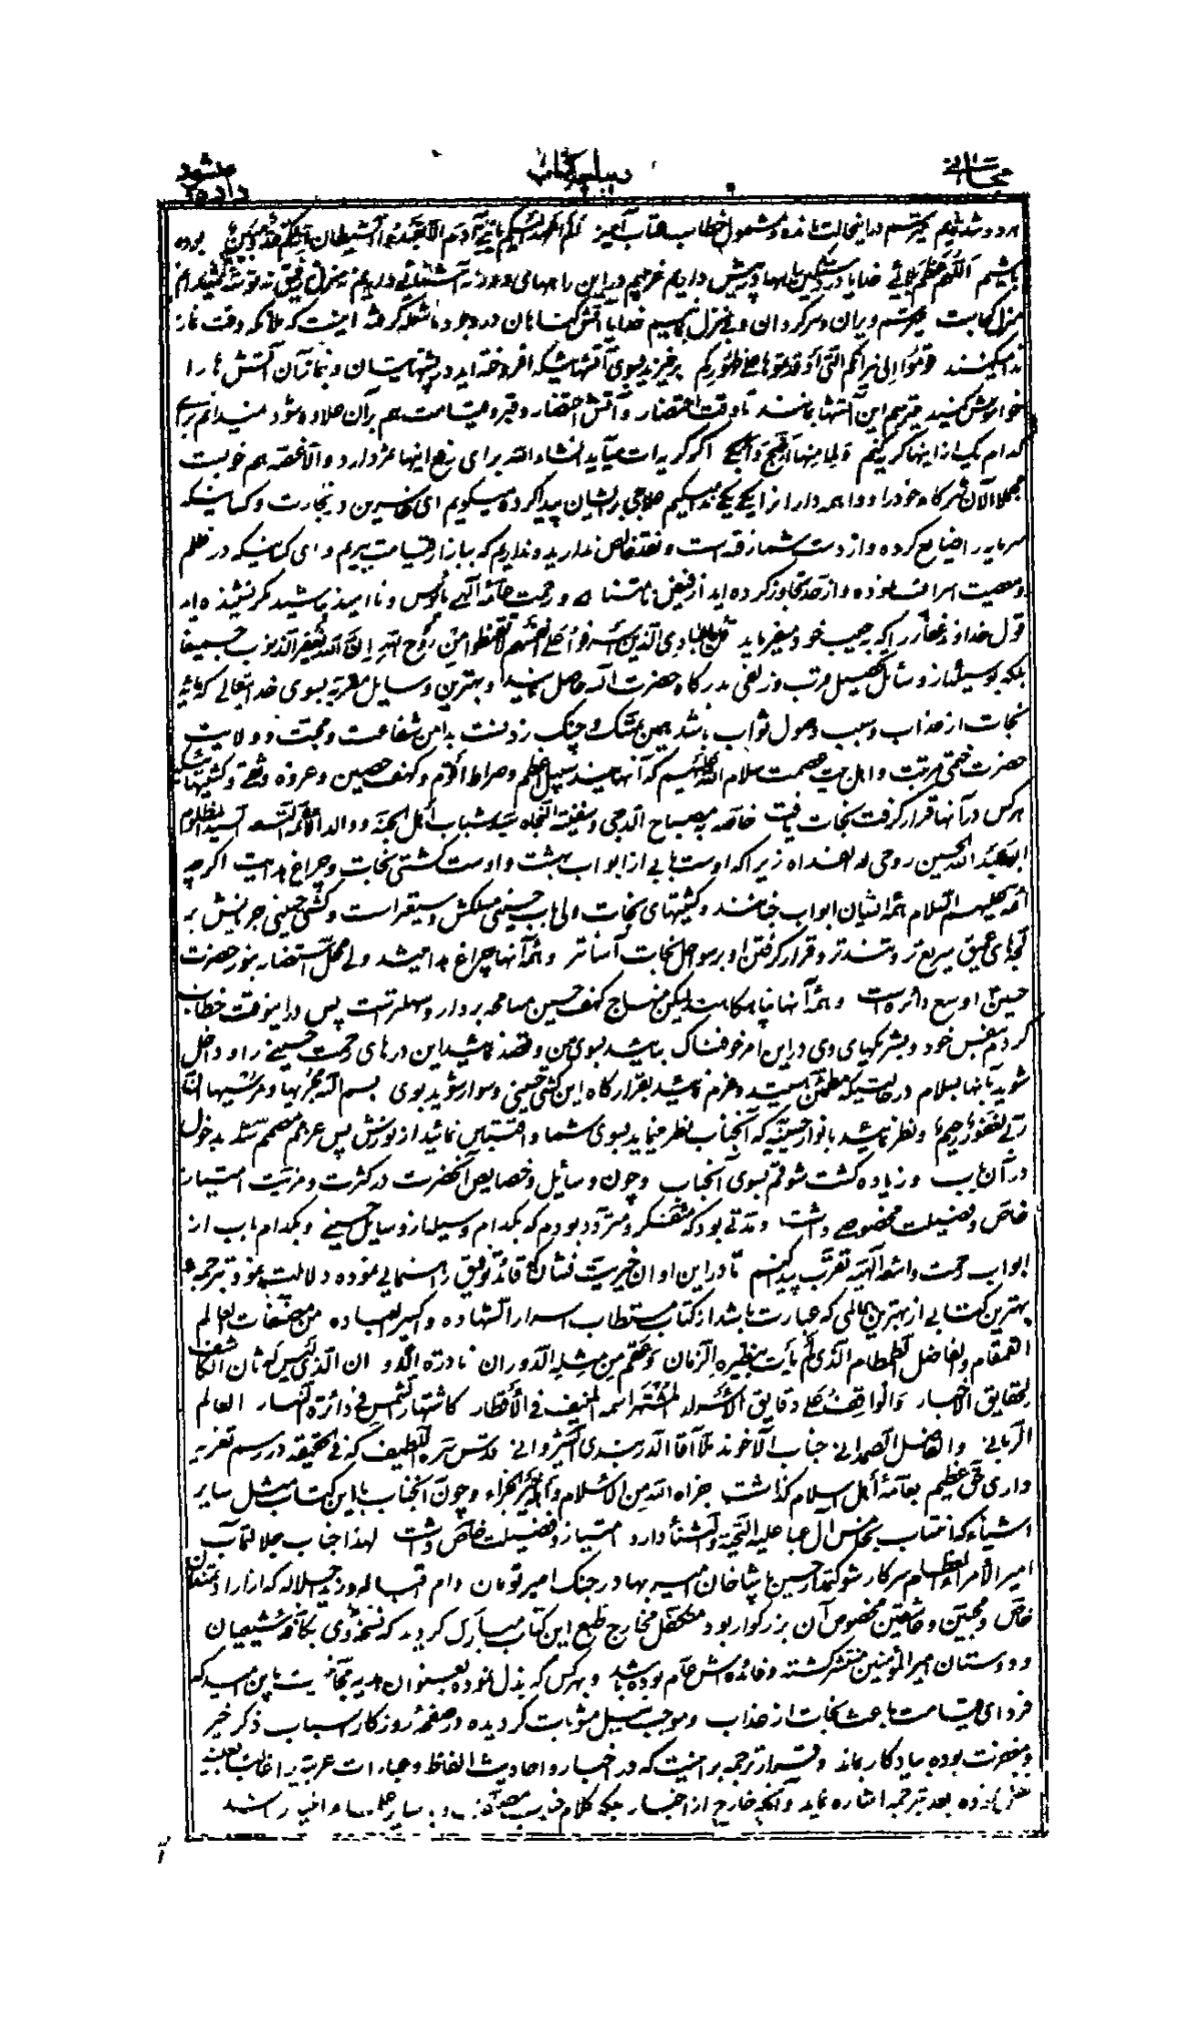 مجانی دیباچه کتاب داده میشود
مردود شدیم میترسم در اینحالت مانده و مشمول خطاب عتاب آمیز الم اعهد الیکم یا بنی آدم ان لا تعبدوا الشیطان انه لکم عدو مبین بوده
باشیم اللهم عظم بلائی خدایا در پیش داریم غریبم در این راههای دور و نه آشنائی داریم نه رفیق نه توشه
منزل کجاست میترسم ویران و سرگردان و بی منزل بمانیم خدایا آتش گناهان در وجود ما شعله گرفته اینست که ملائکه وقت نماز
ندا میکنند قوموا الی نیرانکم التی اوقدتموها علی ظهورکم برخیزید بسوی آتشهائیکه افروخته اید در پشتهایتان و بنمازتان آتش ها را
خواموش کنید میترسم این آتشها بمانند تا وقت احتضار و آتش احتضار و قبر و قیامت هم بر آن علاوه شود نمیدانم برای
کدام یک از اینها گریه کنم و لما منها اضج و ابکی اگر گریه ات میآید انشاء الله برای رفع اینها اثر دارد و الا غصه هم خوبست
مجملا الآن شرکاء خود را و واهمه دارانرا یکی یکی ندا میکنیم علاجی برایشان پیدا کرده میگویم ای خاسرین در تجارت و کسانیکه
سرمایه را ضایع کرده و از دست شما رفته است و نقد خالص ندارید و نداریم که ببازار قیامت ببریم و ای کسانیکه در ظلم
و معصیت اسراف نموده و از حد تجاوز کرده اید از فیض نامتناهی و رحمت عامه الهی مأیوس و ناامید نباشید مگر نشنیده اید
قول خداوند غفار را که بحبیب خود میفرماید قل یا عبادی الذین اسرفوا علی انفسهم لا تقنطوا من روح الله ان الله یغفر الذنوب جمیعا
بلکه بوسیله از وسائل تحصیل مرتب و زلفی بدرگاه حضرت اله حاصل نمائید و بهترین وسایل مقربه بسوی خدایتعالی که مایه
نجات از عذاب و سبب وصول ثواب باشد همین تمسک و چنگ زدنست بدامن شفاعت و محبت و ولایت
حضرت ختمی مرتبت و اهل بیت عصمت سلام الله علیهم که آنها میباشند سبیل اعظم و صراط اقوم و کهف حصین و عروه وثقی و کشتیهائیکه
هر کس در آنها قرار گرفت نجات یافت خاصه به مصباح الدجی و سفینة النجاة سید شباب أهل الجنة و والد الأئمة التسعة السید المظلوم
ابی عبد الله الحسین روحی له الفداء زیرا که اوست بابی از ابواب بهشت و اوست کشتی نجات و چراغ هدایت اگر چه
ائمه علیهم السلام همه ایشان ابواب جنانند و کشتیهای نجات ولی باب حسینی مسلکش وسیعتر است و کشتی حسینی جریانش بر
لجه های عمیق سریع تر و تندتر و قرار گرفتن او بر سواحل نجات آسانتر و همه آنها چراغ هدا میشد ولی محل استضاء بنور حضرت
حسین اوسع دائره است و همه آنها پناهگاهست لیکن منهاج کهف حسین مسامحه بردار و سهلتر است پس در اینوقت خطاب
کردم بنفس خود و بشریکهای وی در این امر خوفناک بیائید بسوی من و قصد نمائید این درهای رحمت حسینی را و داخل
شوید بآنها بسلام در حالتیکه مطمئن هستید و عزم نمائید بقرارگاه این کشتی حسینی و سوار شوید بوی بسم الله مجریها و مرسیها ان
ربی لغفور رحیم و نظر نمائید بانوار حسینیه که آنجناب نظر مینماید بسوی شما و اقتباس نمائید از نورش پس عزمم مصمم شد بدخول
در آن باب و زیاده گشت شوقم بسوی آنجناب و چون وسائل و خصایص آنحضرت در کثرت و مزیت امتیاز
خاص و فضیلت مخصوصی داشت و مدتی بود که متفکر و متردد بودم که بکدام وسیله از وسایل حسینی و بکدام باب از
ابواب رحمت واسعه الهیه تقرب پیدا کنم تا در این اوان خیریت نشان که قائد توفیق راهنمائی نموده دلالت نمود بترجمه
بهترین کتابی از بهترین عالمی که عبارت باشد از کتاب مستطاب اسرار الشهاده و اکسیر العباده من مصنفات العالم
القمقام و الفاضل الطمطام الذی لم یأت بنظیره الزمان و عقم من مثله الدوران نادرة الدوران الذی لیس له ثان الکاشف
لحقایق الاخبار و الواقف علی دقایق الاسرار المشتهر اسمه المنیف فی الأقطار کاشتهار الشمس فی دائرة النهار العالم
الربانی و الفاضل الصمدانی جناب الآخوند ملا آقا الدربندی الشیروانی قدس سره اللطیف که فی الحقیقه در رسم تعزیه
داری حق عظیم بعامه أهل اسلام گذاشت جزاه الله من الاسلام و أهله خیر الجزاء و چون آنجناب با این کتاب مثل سایر
اشیائی که انتساب بخامس آل عبا علیه التحیة و الثنا دارد امتیاز و فضیلت خاص داشت لهذا جناب جلالتمآب
امیر الأمراء العظام سرکار شوکتمدار حسین پاشاخان میر بهادر جنگ امیر تومان دام اقباله و زید جلاله که از ارادتمندان
خاص و محبین و عاشقین مخصوص آن بزرگوار بود متکفل مخارج طبع این کتاب مبارک گردید که نسخه وی بکافه شیعیان
و دوستان امیر المؤمنین منتشر گشته و فائده اش عام بوده باشد و بهر کس که بذل نموده بعنوان هدیه مجانیست باین امید که
فردای قیامت باعث نجات از عذاب و موجب نیل مثوبات گردیده در صفحه روزگار اسباب ذکر خیر
و مغفرت بوده یادگار بماند و قرار ترجمه بر اینست که در اخبار و احادیث الفاظ و عبارات عربیه را غالبا بعینه
نقل نموده بعد بترجمه اشاره نماید و آنچه خارج از اخبار بلکه کلام جناب مصنف و سایر علماء اخیار باشد